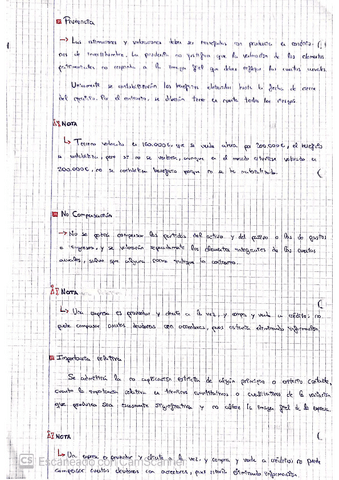 Prudencia
→ Las estimaciones y valoraciones deben ser recogidas con prudencia en condiciones
de incertidumbre. La prudencia no justifica que la valoración de los elementos
patrimoniales no responda a la imagen fiel que deben reflejar las cuentas anuales
Únicamente se contabilizarán los beneficios obtenidos hasta la fecha de cierre
del ejercicio. Por el contrario, se deberán tener en cuenta todos los riesgos
NOTA
↳ Terreno valorado en 150.000€, que se vende ahora por 200.000€, el beneficio
se contabiliza, pero si no se vendiera, aunque en el mercado estuviese valorado en
200.000€, no se contabiliza beneficio porque no se ha materializado.
No Compensación
→ No se podrá compensar las partidas del activo y del pasivo o las de gastos
e ingresos, y se valorarán separadamente los elementos integrantes de las cuentas
anuales, salvo que alguna norma indique lo contrario.
NOTA
↳ Una empresa es proveedor y cliente a la vez, y compra y vende a crédito; no
puede compensar cuentas deudoras con acreedoras, pues estaría eliminando información
Importancia relativa
Se admitirá la no aplicación estricta de algún principio o criterio contable,
cuando la importancia relativa en términos cuantitativos o cualitativos de la variación
que produzca sea escasamente significativa y no altere la imagen fiel de la empresa.
NOTA
↳ Una empresa es proveedor y cliente a la vez, y compra y vende a crédito; no puede
compensar cuentas deudoras con acreedoras, pues estaría eliminando información.
CS Escaneado con CamScanner